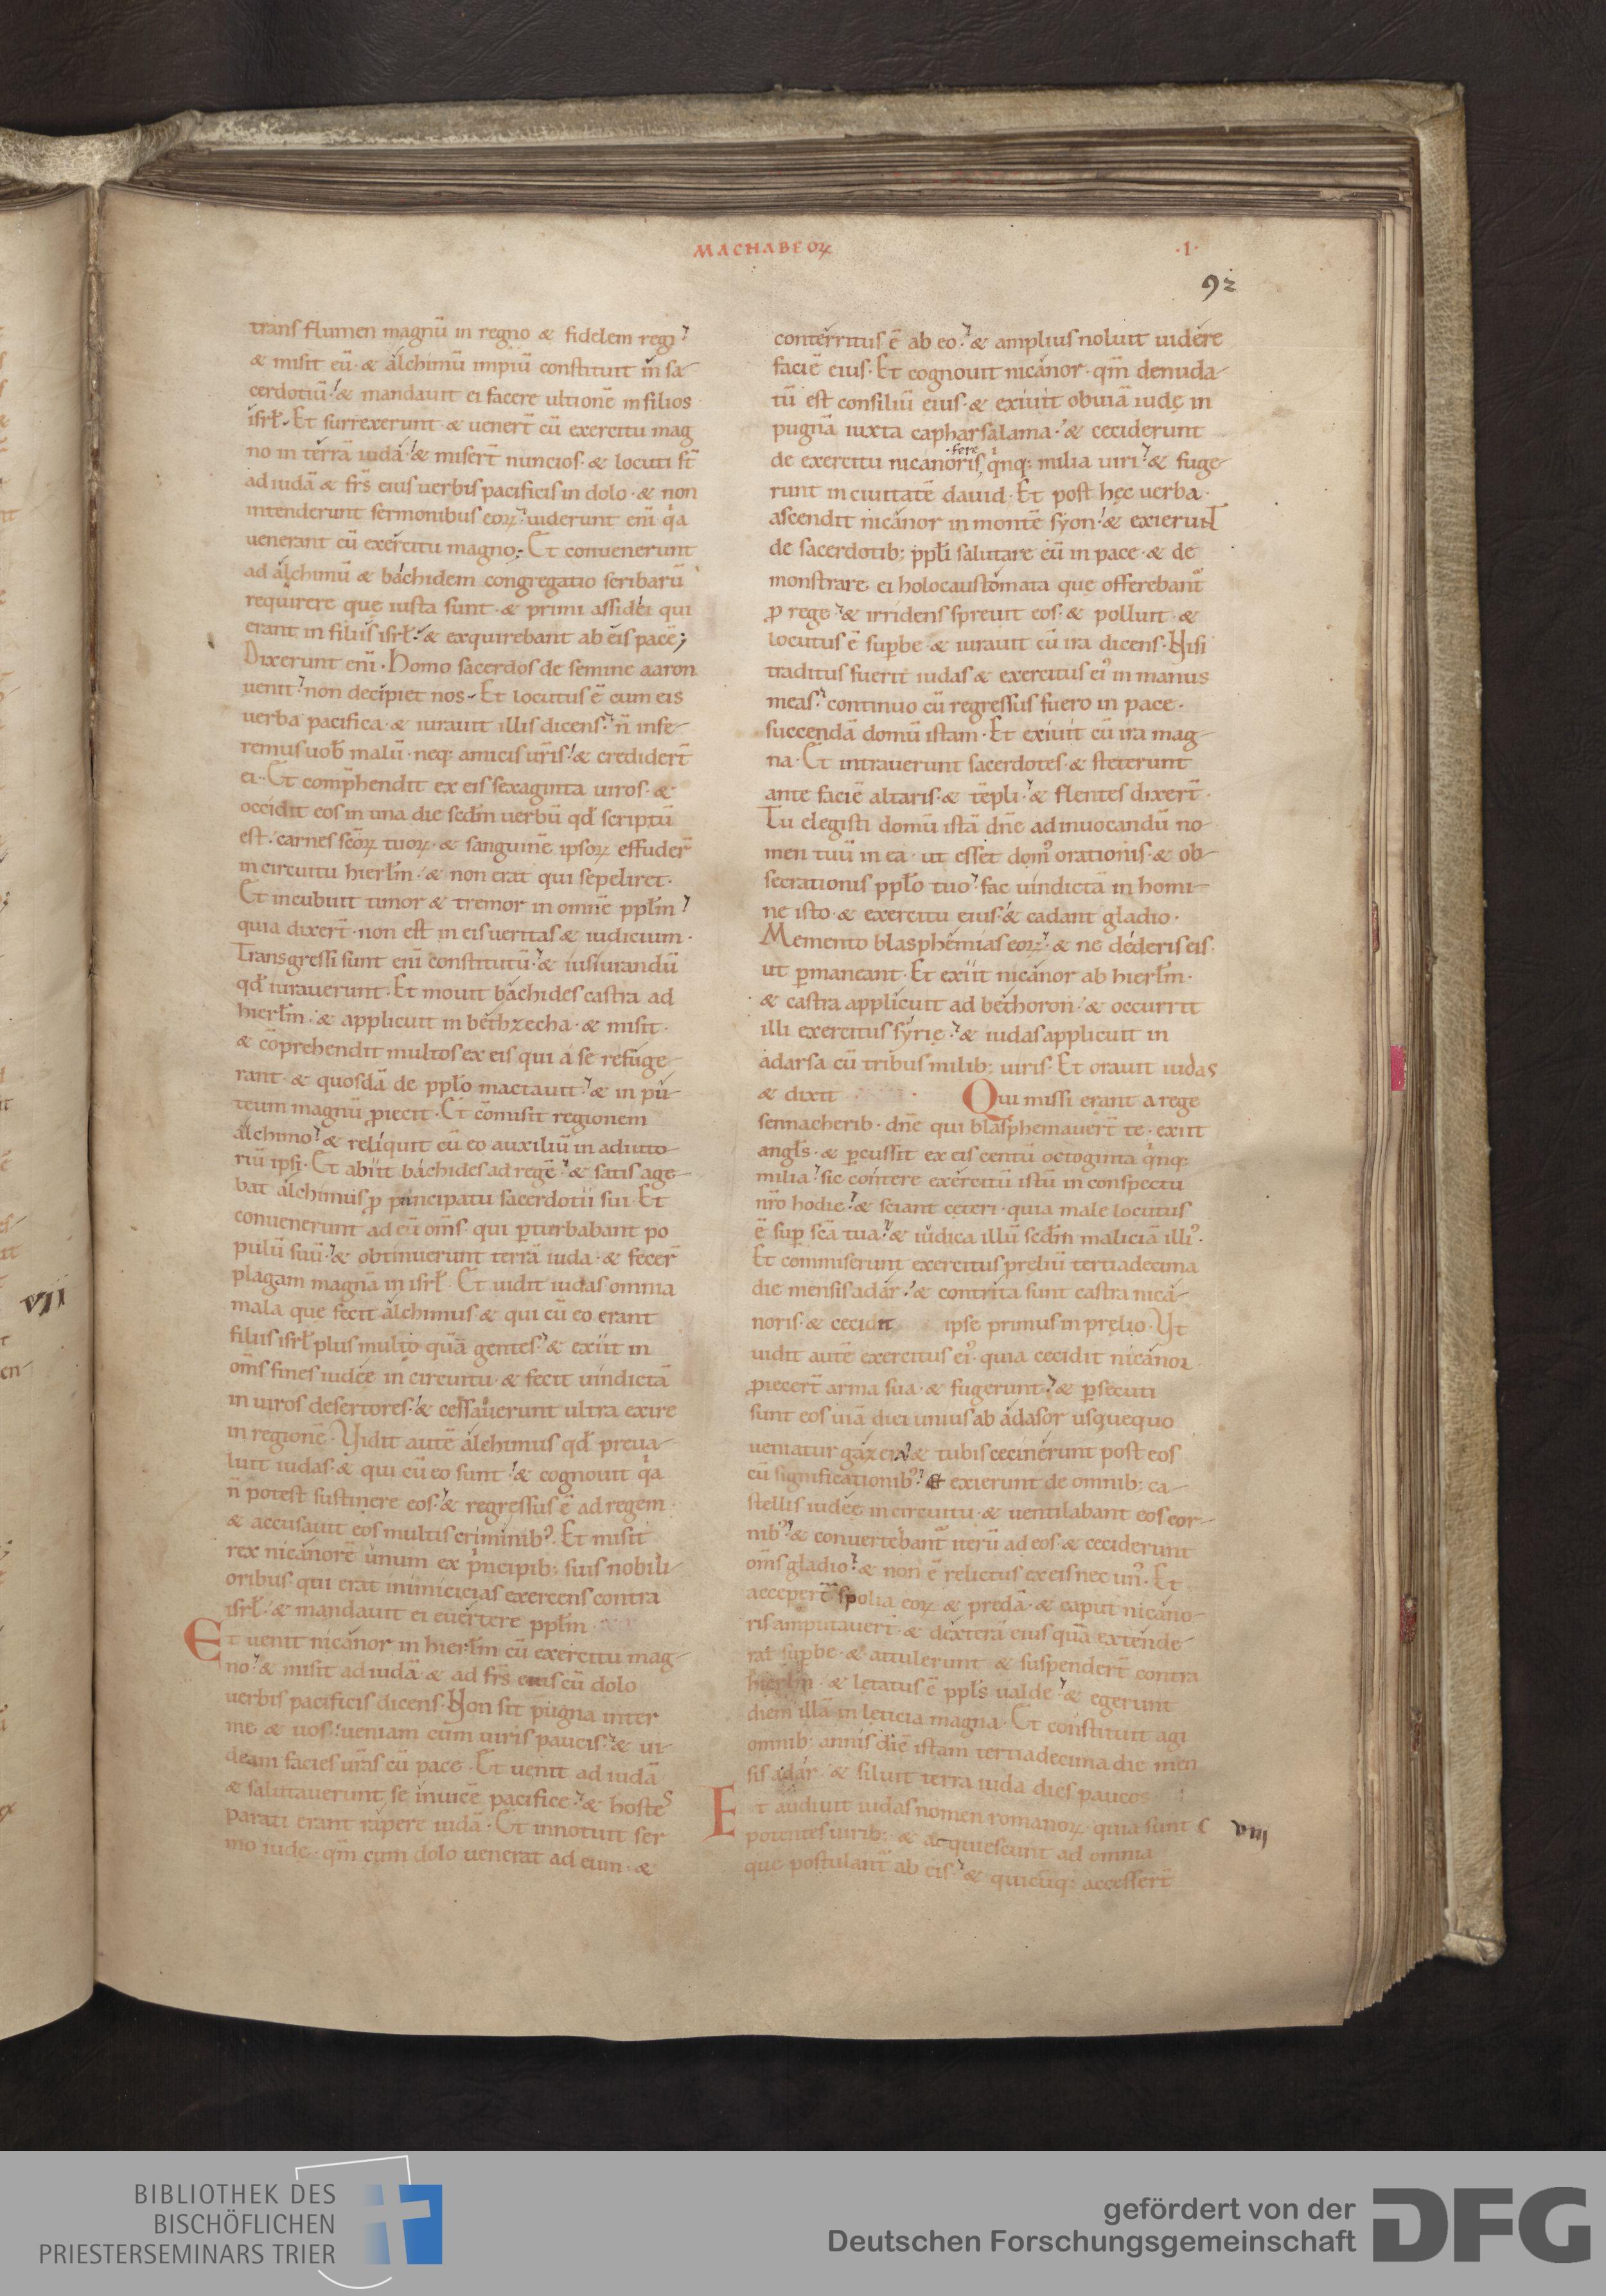 MACHABEOꝜ
·I·
92
trans flumen magnū in regno & fidelem regi
& misit eū & alchimū impiū constituit in sa-
cerdotiū & mandauit ei facere ultionē in filios
isrł. Et surrexerunt & uenerт̄ cū exercitu mag
no in terrā iudā & miserт̄ nuncios & locuti st̄
ad iudā & frs̄ eius uerbis pacificis in dolo & non
intenderunt sermonibus eoꝝ. uiderunt eni q̇a
uenerant cū exercitu magno; Et conuenerunt
ad alchimū & bachidem congregatio scribarū
requirere que iusta sunt & primi assidei qui
erant in filiis isrł. & exquirebant ab eis pacē;
Dixerunt eni. Homo sacerdos de semine aaron
uenit non decipiet nos. Et locutus ē cum eis
uerba pacifica & iurauit illis dicens. n̄ infe-
remus uob̄ malū neq; amicis ur̄is & crediderт̄
ei. Et comp̄hendit ex eis sexaginta uiros &
occidit eos in una die scdm̄ uerbū qđ scriptū
est. carnes sc̄oꝝ tuoꝝ & sanguinē ipsoꝝ effuder̄
in circuitu hierłm & non erat qui sepeliret.
Et incubuit timor & tremor in omnē ppłm
quia dixerт̄ non est in eis ueritas & iudicium.
Transgressi sunt eni constitutū & iusiurandū
qđ iurauerunt. Et mouit bachides castra ad
hierłm & applicuit in bethzecha & misit.
& cōprehendit multos ex eis qui a se refuge-
rant & quosdā de ppło mactauit & in pu-
teum magnū ꝓiecit. Et cōmisit regionem
alchimo & reliquit cū eo auxiliū in adiuto-
riū ipsi. Et abiit bachides ad regē & satis age-
bat alchimus ꝓ principatu sacerdotii sui. Et
conuenerunt ad eū om̄s qui ꝑturbabant po
pulū suū & obtinuerunt terrā iuda & fecer̄
plagam magnā in isrł. Et uidit iudas omnia
mala que fecit alchimus & qui cū eo erant
filiis isrł plus multo quā gentes & exiit in
om̄s fines iudee in circuitu & fecit uindictā
in uiros desertores & cessauerunt ultra exire
in regionē. Vidit autē alchimus qđ preua-
luit iudas & qui cū eo sunt & cognouit q̇a
n̄ potest sustinere eos & regressus ē ad regem
& accusauit eos multis criminib;. Et misit
rex nicanorē unum ex pͥncipib; suis nobili-
oribus qui erat inimicicias exercens contra
isrł & mandauit ei euertere ppłm
Et uenit nicanor in hierłm cū exercitu mag-
no & misit ad iudā & ad frs̄ eius cū dolo
uerbis pacificis dicens. Non sit pugna inter
me & uos. ueniam cum uiris paucis & ui-
deam facies ur̄as cū pace. Et uenit ad iudā
& salutauerunt se inuicē pacifice & hostes
parati erant rapere iudā. Et innotuit ser
mo iude qm̄ cum dolo uenerat ad eum &
conterritus ē ab eo & amplius noluit uidere
faciē eius. Et cognouit nicanor qm̄ denuda-
tū est consiliū eius & exiuit obuiā iude in
pugnā iuxta capharsalama & ceciderunt
de exercitu nicanoris fere qͥnq; milia uiri & fuge-
runt in ciuitatē dauid. Et post hec uerba
ascendit nicanor in montē syon & exierunt
de sacerdotib; ppłi salutare eū in pace & de
monstrare ei holocaustomata que offerebant̄
ꝓ rege & irridens spreuit eos & polluit &
locutus ē suꝑbe & iurauit cū ira dicens. Nisi
traditus fuerit iudas & exercitus eiꝰ in manus
meas continuo cū regressus fuero in pace.
succendā domū istam. Et exiuit cū ira mag-
na. Et intrauerunt sacerdotes & steterunt
ante faciē altaris & tēpli & flentes dixerт̄.
Tu elegisti domū istā dn̄e ad inuocandū no-
men tuū in ea ut esset domꝰ orationis & ob-
secrationis ppło tuo. fac uindictā in homi-
ne isto & exercitu eius & cadant gladio.
Memento blasphemias eoꝝ & ne dederis eis
ut ꝑmaneant. Et exiit nicanor ab hierłm.
& castra applicuit ad bethoron & occurrit
illi exercitus syrię & iudas applicuit in
adarsa cū tribus milib; uiris. Et orauit iudas
& dixit Qui missi erant a rege
sennacherib dn̄e qui blasphemauerт̄ te exiit
angłs & ꝑcussit ex eis centū octoginta qͥnq;
milia sic contere exercitū istū in conspectu
nr̄o hodie & sciant ceteri quia male locutus
ē suꝑ sc̄a tua & iudica illū scdm̄ maliciā illiꝰ.
Et commiserunt exercitus preliū tertiadecima
die mensis adar & contrita sunt castra nica-
noris & cecidit ipse primus in prelio. Vt
uidit autē exercitus eiꝰ quia cecidit nicanor
ꝓiecerт̄ arma sua & fugerunt & ꝑsecuti
sunt eos uiā diei unius ab adasor usquequo
ueniatur gazera & tubis cecinerunt post eos
cū significationibꝰ & exierunt de omnib; ca-
stellis iudee in circuitu & uentilabant eos cor-
nibꝰ & conuertebant̄ iterū ad eos & ceciderunt
om̄s gladio & non ē relictus ex eis nec unꝰ. Et
acceperт̄ spolia eoꝝ & predā & caput nicano-
ris amputauerт̄ & dexterā eius quā extende-
rat suꝑbe & attulerunt & suspenderт̄ contra
hierłm & letatus ē ppłs ualde & egerunt
diem illā in leticia magna. Et constituit agi
omnib; annis diē istam tertiadecima die men
sis adar & siluit terra iuda dies paucos
Et audiuit iudas nomen romanoꝝ quia sunt
potentes uirib; & acquiescunt ad omnia
que postulant̄ ab eis & quicūq; accesserт̄
vii
viii
BIBLIOTHEK DES
BISCHÖFLICHEN
PRIESTERSEMINARS TRIER
gefördert von der
Deutschen Forschungsgemeinschaft
DFG